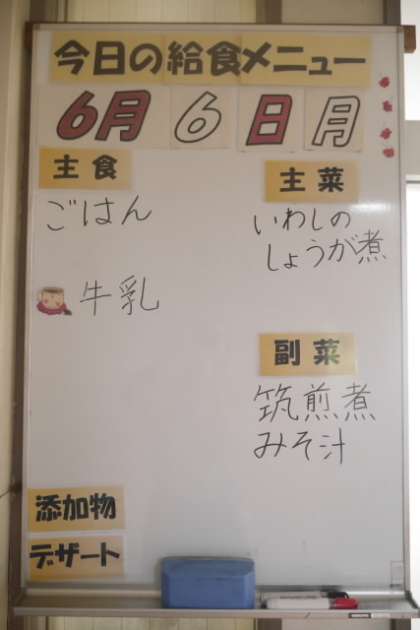 今日の給食メニュー
6月6日月
主食
ごはん
牛乳
主菜
いわしの
しょうが煮
副菜
筑煎煮
みそ汁
添加物
デザート